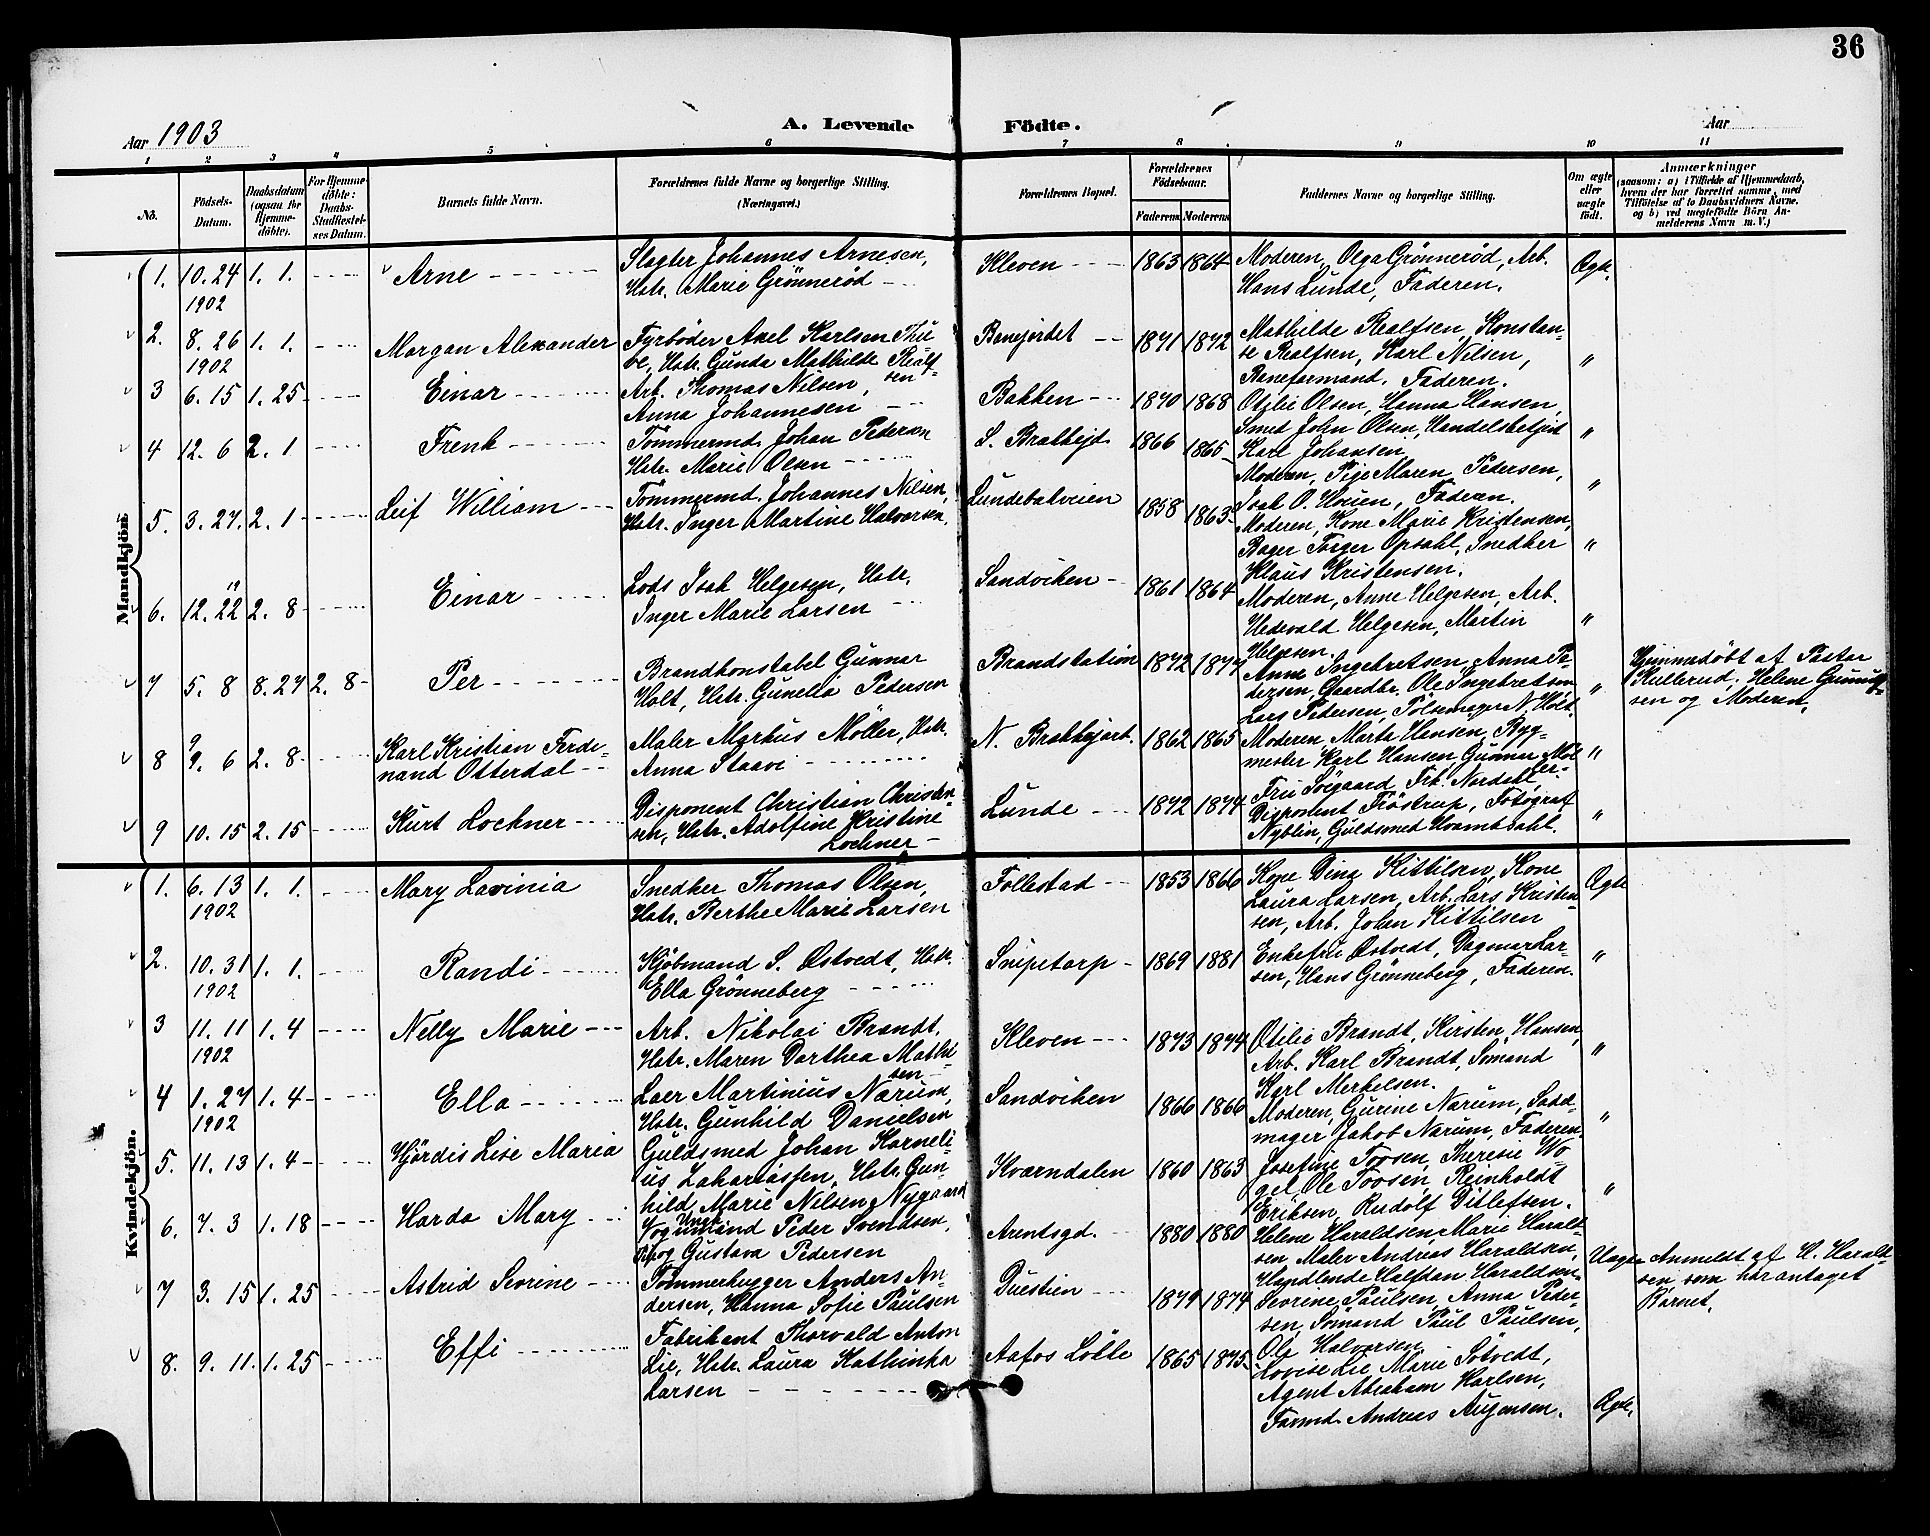 36
Aar 1903
A. Levende Födte.
Aar
1 2 3 4 5 6 7 8 9 10 11
No.
Födsels-Datum.
Daabsdatum (ogsaa for Hjemmedöbte).
For Hjemmedöbte: Daabs-Stadfæstelses Datum.
Barnets fulde Navn.
Forældrenes fulde Navne og borgerlige Stilling.
(Næringsvei.)
Forældrenes Bopæl.
Forældrenes Födselsaar.
Faderens Moderens
Faddernes Navne og borgerlige Stilling.
Om ægte eller uægte födt.
Anmærkninger
(saasom: a) i Tilfælde af Hjemmedaab, hvem der har forrettet samme, med Tilföielse af to Daabsvidners Navne, og b) ved uægtefödte Börn Anmelderens Navn m. V.)
Mandkjön
1. 10. 24 1902 1. 1. Arne
Slagter Johannes Arnesen,
Hstr. Marie Grönnerød
Kleven 1863 1864
Moderen, Olga Grönnerød, Arb.
Hans Lunde, Faderen.
Ægte.
2. 8. 26 1902 1. 1. Morgan Alexander
Fyrböder Axel Karlsen Thu-
be, Hstr. Gunda Mathilde Realf-
sen
Banejordet 1871 1872
Mathilde Realfsen, Konstan-
se Realfsen, Karl Nilsen,
Baneformand, Faderen.
"
3 6. 15 1. 25 Einar
Arb. Thomas Nilsen,
Anna Johannesen
Bakken 1870 1868
Otilie Olsen, Hanna Hansen,
Smed John Olsen, Handelsbetjent
Karl Johansen
"
4 12. 6 2. 1 Frenk
Tömmermd. Johan Pedersen
Hstr. Marie Olsen
S. Brekkejd 1866 1865
Moderen, Pige Maren Pedersen,
Isak O. Houen, Faderen.
"
5. 3. 27. 2. 1 Leif William
Tömmermd. Johannes Nilsen,
Hstr. Inger Martine Halvorsen,
Lundebakveien 1858 1863
Moderen, Kone Marie Kristensen,
Bager Torger Opsahl, Snedker
Klaus Kristensen.
"
6. 12. 22 2. 8 Einar
Lods Isak Helgesen, Hstr.
Inger Marie Larsen
Sandviken 1861 1864
Moderen, Anne Helgesen, Arb.
Hedevald Helgesen, Martin
Helgesen.
"
7 5. 8 8. 27 2. 8 Per
Brandkonstabel Gunnar
Holt, Hstr. Gunelia Pedersen
Brandstation 1872 1877
Anne Ingebretsen, Anna Pe-
dersen, Gaardbr. Ole Ingebretsen
Lars Pedersen, Pölsemager N. Holt.
"
Hjemmedøbt af Pastor
Kullerud, Helene Gunnuf-
sen og Moderen,
8 9. 6 2. 8 Karl Kristian Ferdi-
nand Otterdal
Maler Markus Möller, Hstr.
Anna Staavi
N. Brekkejort. 1862 1865
Moderen, Marta Hansen, Byg-
mester Karl Hansen, Gunnar Möl-
ler
"
9 10. 15 2. 15 Kurt Lochner
Disponent Christian Christen-
sen, Hstr. Adolfine Kristine
Lochner
Lunde 1872 1874
Fru Söigaard, Frk. Nordahl
Disponent Fröstrup, Fotograf
Nyblin, Guldsmed Kvambdahl.
"
Kvindekjön.
1. 6. 13 1902 1. 1. Mary Lavinia
Snedker Thomas Olsen,
Hstr. Berthe Marie Larsen
Follestad 1853 1866
Kone Dina Kittilsen, Kone
Laura Larsen, Arb. Lars Kristen-
sen, Arb. Johan Kittilsen
Ægte
2. 10. 31 1902 1. 1. Randi
Kjöbmand S. Østvedt, Hstr.
Ella Grönneberg
Snipetorp 1869 1881
Enkefru Østvedt, Dagmar Lar-
sen, Hans Grönneberg, Faderen.
"
3 11. 11 1902 1. 4 Nelly Marie
Arb. Nikolai Brandt,
Hstr. Maren Dorthea Mathi-
sen
Kleven 1873 1874
Otilie Brandt, Kirsten, Hansen,
Arb. Karl Brandt, Sömand
Karl Merkelsen.
"
4 1. 27 1902 1. 4 Ella
Laer Martinius Nærum,
Hstr. Gunhild Danielsen
Sandviken 1866 1866
Moderen, Gurine Nærum, Sadd-
mager Jakob Nærum, Faderen.
"
5. 11. 13 1. 4 Hjördis Lise Maria
Guldsmed Johan Korneli-
us Zakariassen, Hstr. Gun-
hild Marie Nilsen Nygaard
Kværndalen 1860 1863
Josefine Toosen, Therese Wo-
gel, Ole Toosen, Reinholdt
Eriksen, Rudolf Ditlefsen.
"
6. 7. 3 1. 18 Harda Mary
Vognmand Peder Svendsen,
og Gustava Pedersen
Arentsgd. 1880 1880
Helene Haraldsen, Marie Harald-
sen Maler Andreas Haraldsen,
Handlende Halfdan Haraldsen
Uægte
Anmeldt af H. Harald-
sen, som har antaget
Barnet.
7 3. 15 1. 25 Astrid Sevrine
Tömmerhugger Anders An-
dersen, Hanna Sofie Paulsen
Duestien 1879 1874
Sevrine Paulsen, Anna Peder-
sen, Sömand Paul Paulsen,
Ole Halvorsen
8. 9. 11. 1. 25 Effi
Fabrikant Thorvald Anton
Lie, Hstr. Laura Kathinka
Larsen
Aafos Løkke 1865 1875
Lovise Lie, Marie Sötvedt,
Agent Abraham Karlsen,
Formd. Andreas Augensen.
Ægte.